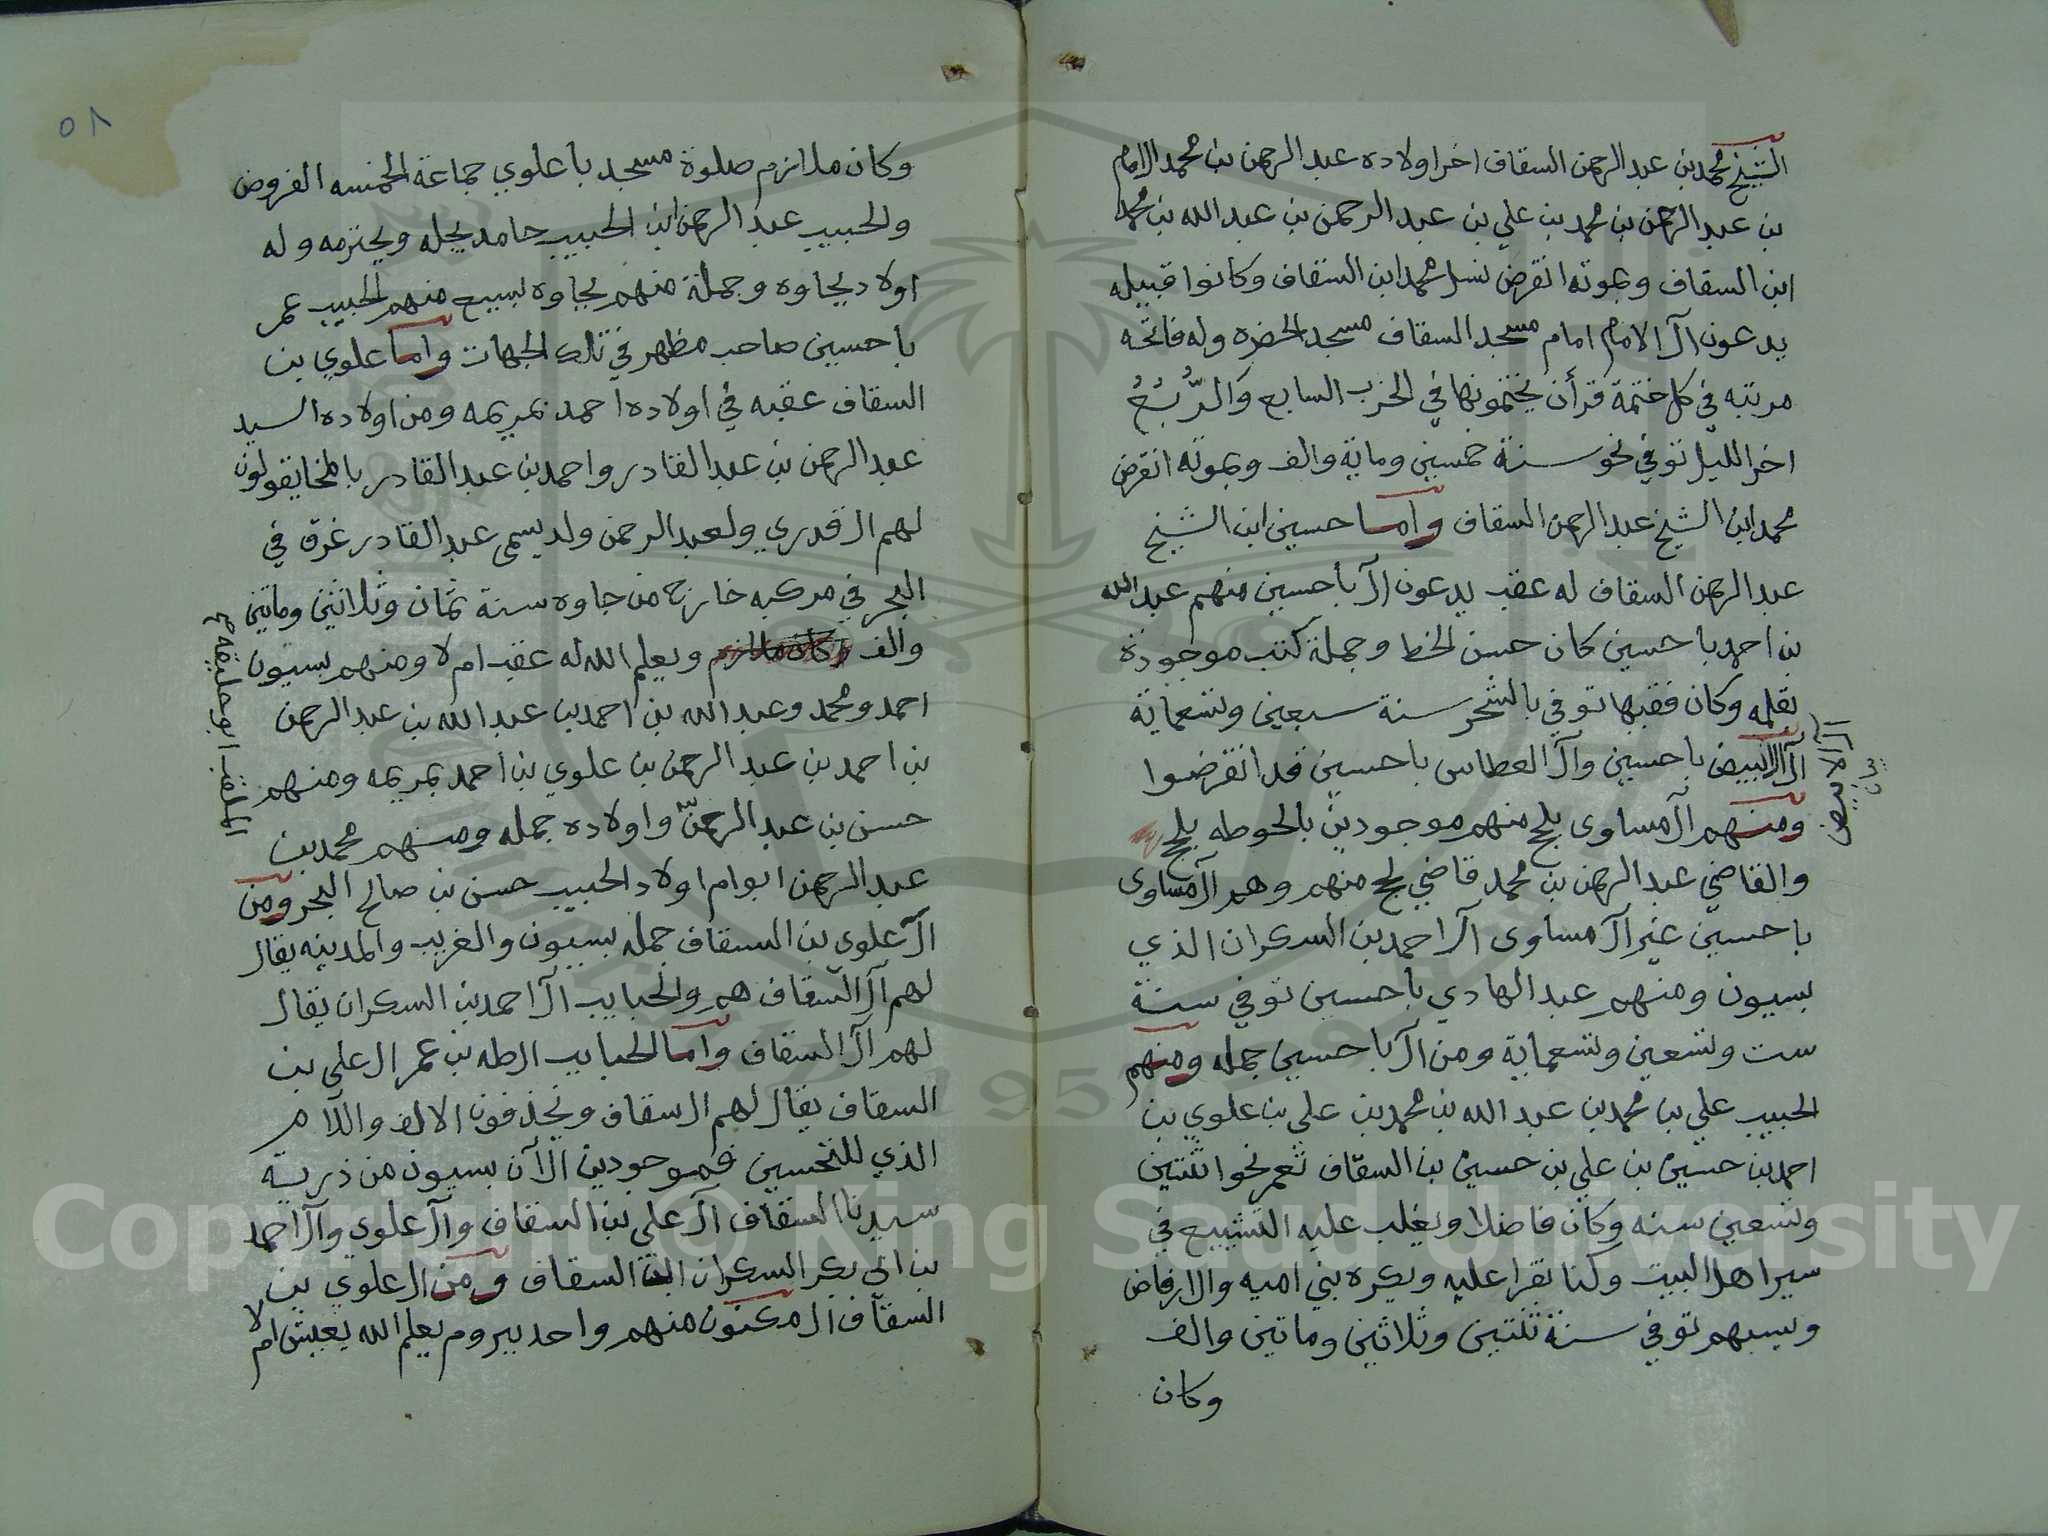 الشيخ محمد بن عبد الرحمن السقاف اخر اولاده عبد الرحمن بن محمد الامام
بن عبد الرحمن بن محمد بن علي بن عبد الرحمن بن عبد الله بن محمد
ابن السقاف وبموته انقرض نسل محمد ابن السقاف وكانوا قبيله
يدعون آل الامام امام مسجد السقاف مسجد الحضره وله فاتحه
مرتبه في كل ختمة قرأن يختمونها في الحزب السابع والرُّبُعُ
اخر الليل توفي نحو سنة خمسين وماية والف وبموته انقرض
محمد ابن الشيخ عبد الرحمن السقاف وأما حسين ابن الشيخ
عبد الرحمن السقاف له عقب يدعون آل باحسين منهم عبد الله
بن احمد باحسين كان حسن الخط وجملة كتب موجودة
بقلمه وكان فقيها توفي بالشحر سنة سبعين وتسعماية
آل الابيض باحسين وآل العطاس باحسين قد انقرضوا
ومنهم آل مساوى بلحج منهم موجودين بالحوطه بلحج
والقاضي عبد الرحمن بن محمد قاضي لحج منهم وهم آل مساوى
باحسين غير آل مساوى آل احمد بن السكران الذي
بسيون ومنهم عبد الهادي باحسين توفي سنة
ست وتسعين وتسعماية ومن آل باحسين جمله ومنهم
الحبيب علي بن محمد بن عبد الله بن محمد بن علي بن علوي بن
احمد بن حسين بن علي بن حسين بن السقاف تعمر نحوا ثنتين
وتسعين سنه وكان فاضلا ويغلب عليه التشييع في
سير اهل البيت وكنا نقرا عليه ويكره بني اميه والارفاض
ويسبهم توفي سنة ثنتين وثلاثين وماتين والف
وكان
آل الابيض
٥٨
وكان ملازم صلوة مسجد باعلوي جماعة الخمسه الفروض
والحبيب عبد الرحمن ابن الحبيب حامد يجله ويحترمه وله
اولاد بجاوه وجملة منهم بجاوه لسيع منهم الحبيب عمر
باحسين صاحب مظهر في تلك الجهات وأما علوي بن
السقاف عقبه في اولاده احمد بمريمه ومن اولاده السيد
عبد الرحمن بن عبد القادر واحمد بن عبد القادر بالمخا يقولون
لهم ال قدري ولعبد الرحمن ولد يسمى عبد القادر غرق في
البحر في مركبه خارج من جاوه سنة ثمان وثلاثين وماتين
والف ويعلم الله له عقب ام لا ومنهم بسيون
احمد ومحمد وعبد الله بن احمد بن عبد الله بن عبد الرحمن
بن احمد بن عبد الرحمن بن علوي بن احمد بمريمه ومنهم
حسن بن عبد الرحمن واولاده جمله ومنهم محمد بن
عبد الرحمن ابو ام اولاد الحبيب حسن بن صالح البحر ومن
آل علوي بن السقاف جمله بسيون والغريب والمدينه يقال
لهم آل السقاف هم والحبايب آل احمد بن السكران يقال
لهم آل السقاف وأما الحبايب ال طه بن عمر ال علي بن
السقاف يقال لهم ال سقاف ويحذفون الالف واللام
الذي للتحسين فموجودين الآن بسيون من ذرية
سيدنا السقاف آل علي بن السقاف وآل علوي وآل احمد
بن ابي بكر السكران ابن السقاف ومن ال علوي بن
السقاف ال مكنون منهم واحد بيروم يعلم الله يعيش ام لا
الملقب ابو حليقه
Copyright © King Saud University
1957